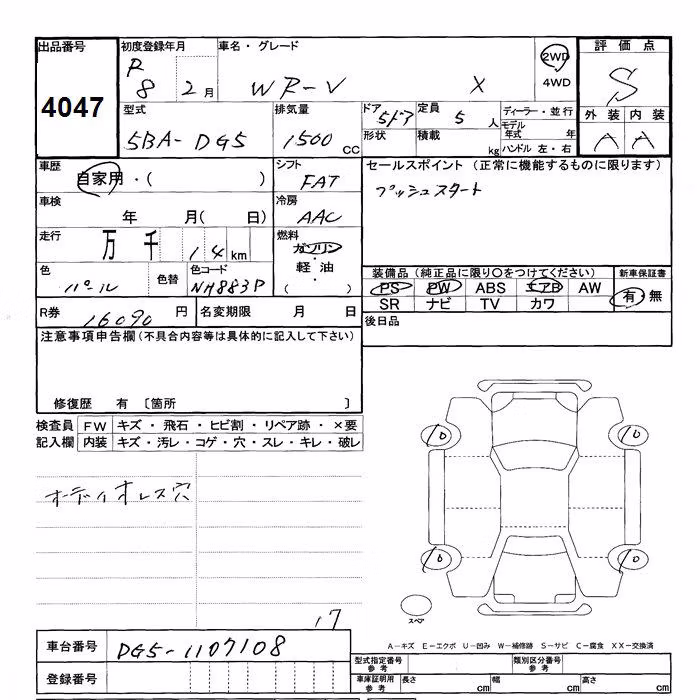 出品番号
4047
初度登録年月
R
8 2月
車名・グレード
WR-V X
2WD
4WD
評価点
S
外装 内装
A A
型式
5BA-DG5
排気量
1500 CC
ドア
5ドア
形状
定員
5 人
積載
kg
ディーラー・並行
モデル
年式 年
ハンドル 左・右
車歴
自家用・( )
シフト
FAT
セールスポイント (正常に機能するものに限ります)
プッシュスタート
車検
年 月( 日)
冷房
AAC
走行
万 千 14 km
燃料
ガソリン
・
軽油
・
( )
色
パール
色替
色コード
NH883P
装備品(純正品に限り〇をつけてください)
PS PW ABS エアB AW
SR ナビ TV カワ
新車保証書
有・無
R券
16090 円
名変期限 月 日
後日品
注意事項申告欄(不具合内容等は具体的に記入して下さい)
修復歴 有 〔箇所 〕
検査員
記入欄
FW キズ・飛石・ヒビ割・リペア跡・×要
内装 キズ・汚レ・コゲ・穴・スレ・キレ・破レ
オーディオレス穴
17
10
10
10
10
スペア
A−キズ E−エクボ U−凹み W−補修跡 S−サビ C−腐食 XX−交換済
車台番号
DG5-1107108
登録番号
型式指定番号
参考
類別区分番号
参考
車庫証明用
参考
長さ cm
幅 cm
高さ cm